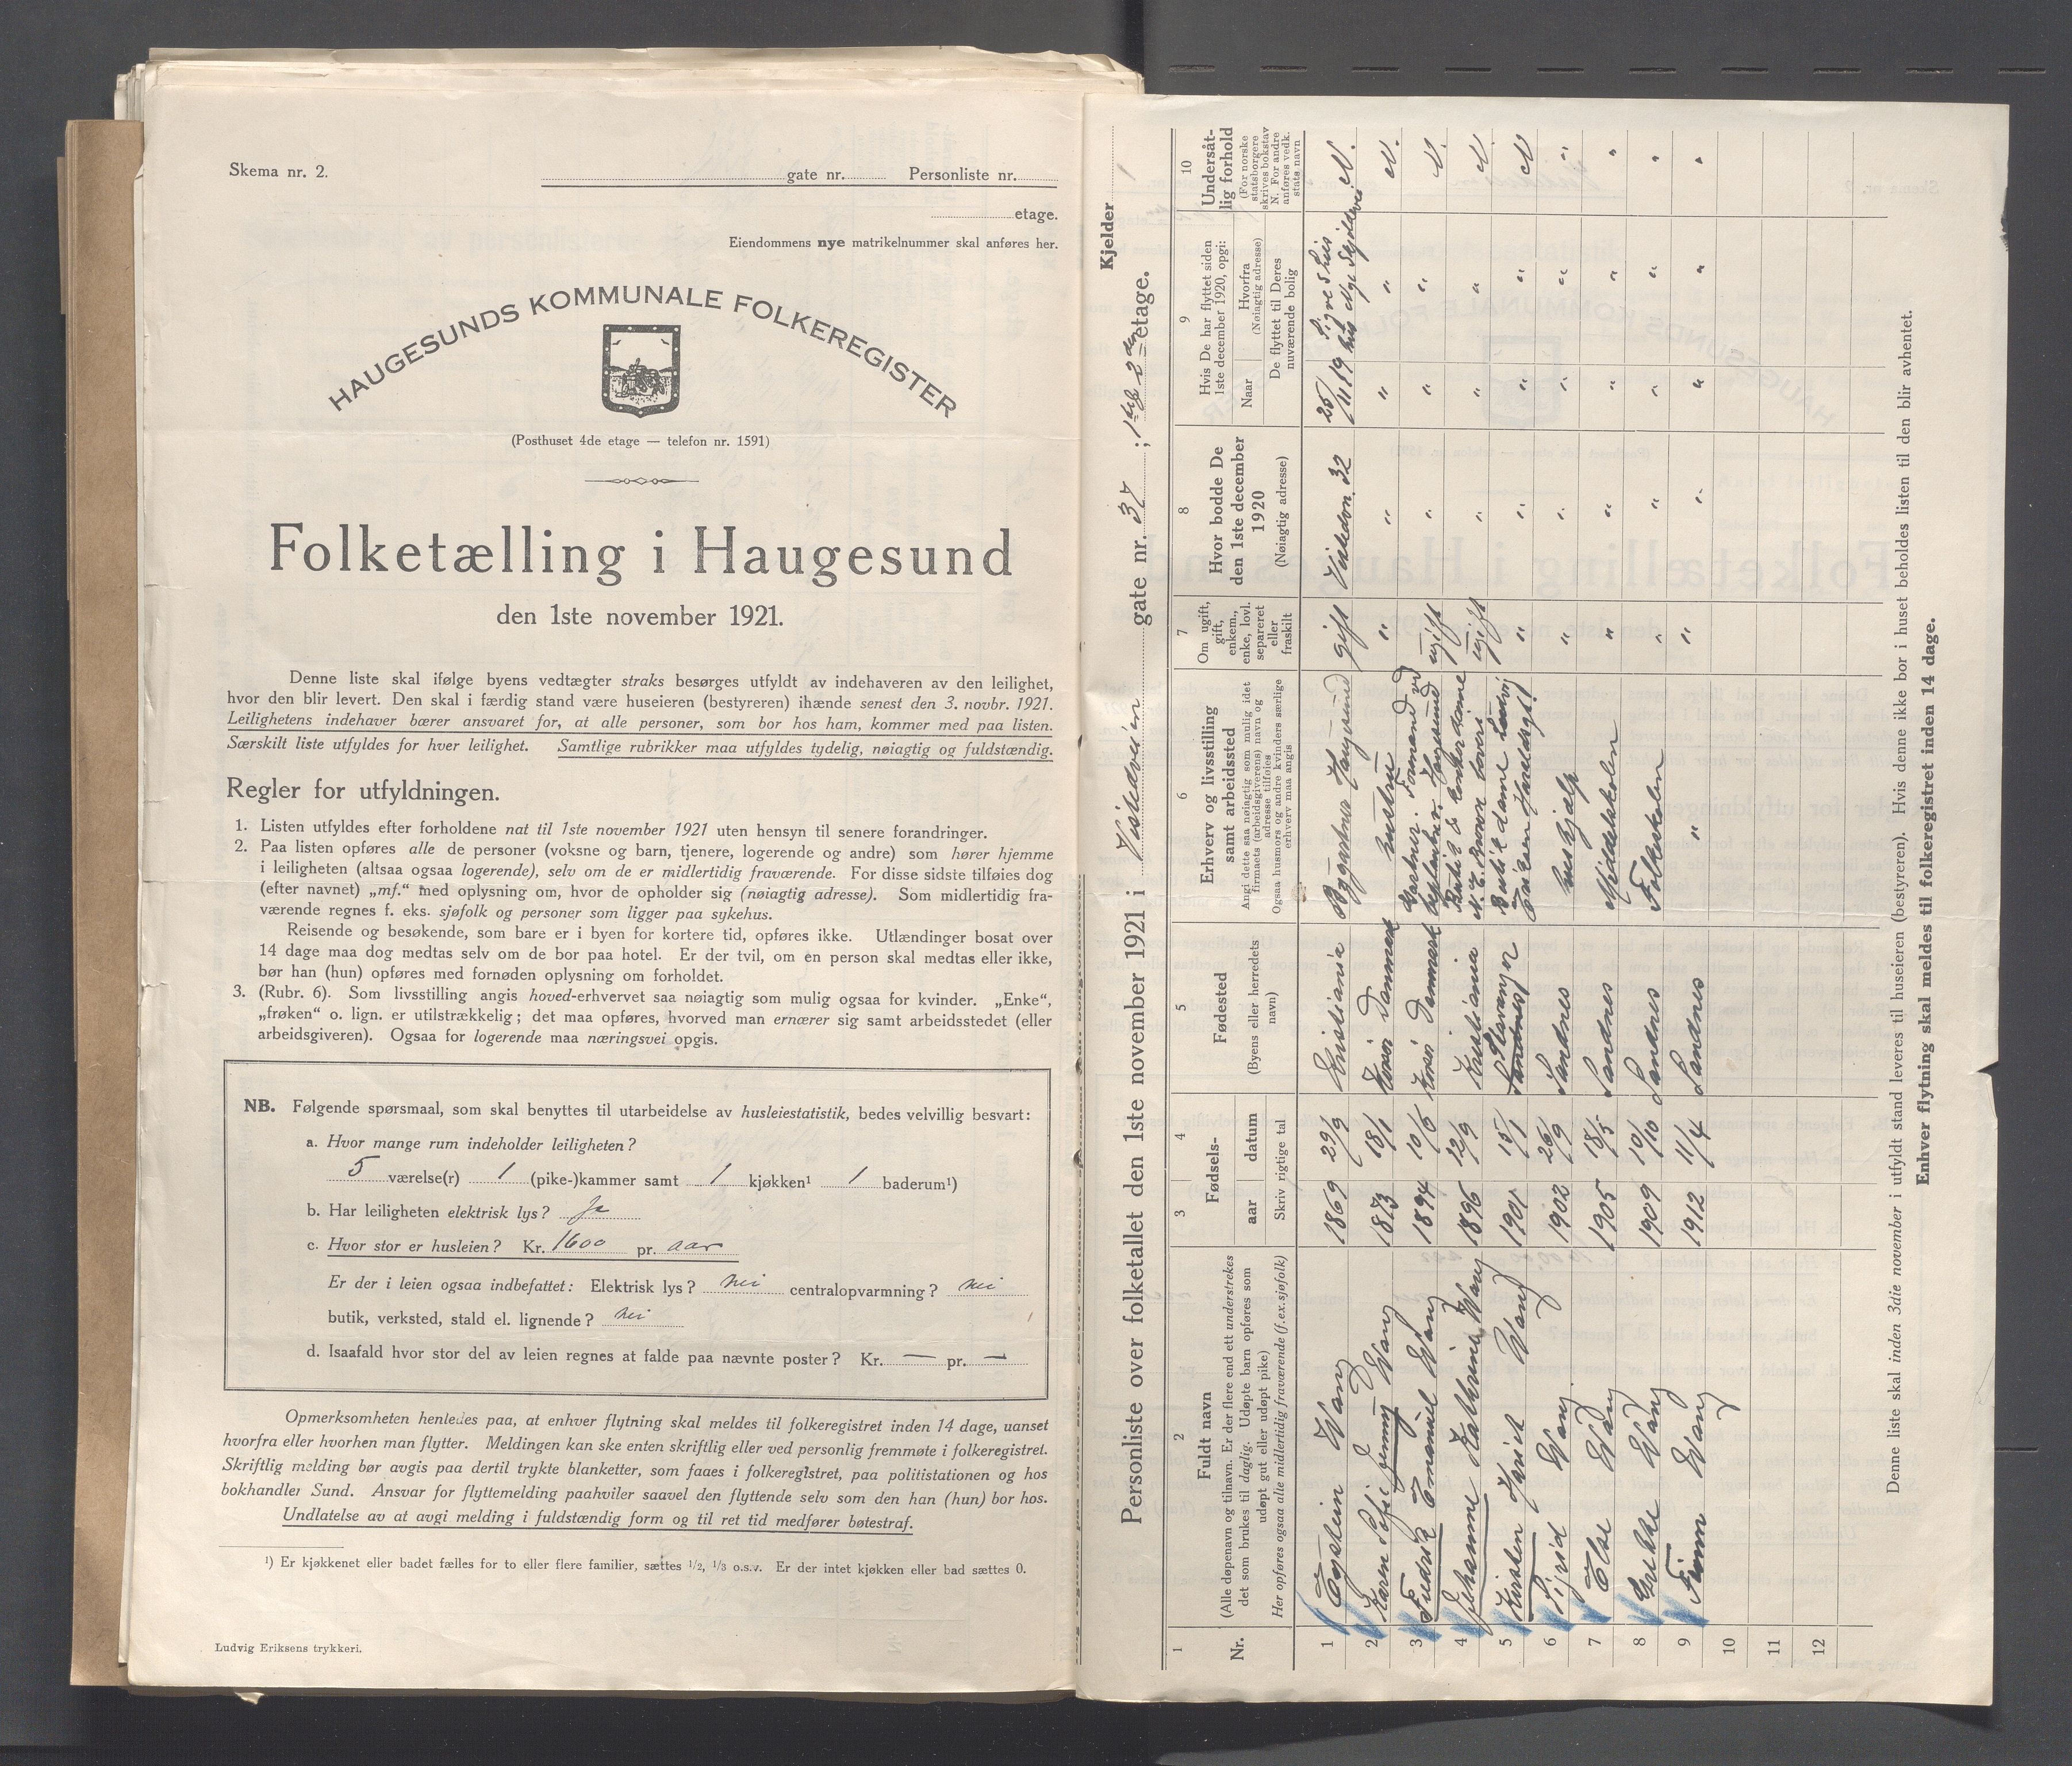 Skema nr. 2.
gate nr. Personliste nr.
etage.
Eiendommens nye matrikelnummer skal anføres her.
HAUGESUNDS KOMMUNALE FOLKEREGISTER
(Posthuset 4de etage — telefon nr. 1591)
Folketælling i Haugesund
den 1ste november 1921.
Denne liste skal ifølge byens vedtægter straks besørges utfyldt av indehaveren av den leilighet,
hvor den blir levert. Den skal i færdig stand være huseieren (bestyreren) ihænde senest den 3. novbr. 1921.
Leilighetens indehaver bærer ansvaret for, at alle personer, som bor hos ham, kommer med paa listen.
Særskilt liste utfyldes for hver leilighet. Samtlige rubrikker maa utfyldes tydelig, nøiagtig og fuldstændig.
Regler for utfyldningen.
1. Listen utfyldes efter forholdene nat til 1ste november 1921 uten hensyn til senere forandringer.
2. Paa listen opføres alle de personer (voksne og barn, tjenere, logerende og andre) som hører hjemme
i leiligheten (altsaa ogsaa logerende), selv om de er midlertidig fraværende. For disse sidste tilføies dog
(efter navnet) „mf.“ med oplysning om, hvor de opholder sig (nøiagtig adresse). Som midlertidig fra-
værende regnes f. eks. sjøfolk og personer som ligger paa sykehus.
Reisende og besøkende, som bare er i byen for kortere tid, opføres ikke. Utlændinger bosat over
14 dage maa dog medtas selv om de bor paa hotel. Er der tvil, om en person skal medtas eller ikke,
bør han (hun) opføres med fornøden oplysning om forholdet.
3. (Rubr. 6). Som livsstilling angis hoved-erhvervet saa nøiagtig som mulig ogsaa for kvinder. „Enke“,
„frøken“ o. lign. er utilstrækkelig; det maa opføres, hvorved man ernærer sig samt arbeidsstedet (eller
arbeidsgiveren). Ogsaa for logerende maa næringsvei opgis.
NB. Følgende spørsmaal, som skal benyttes til utarbeidelse av husleiestatistik, bedes velvillig besvart:
a. Hvor mange rum indeholder leiligheten?
5 værelse(r) 1 (pike-)kammer samt 1 kjøkken¹ 1 baderum¹)
b. Har leiligheten elektrisk lys? Ja
c. Hvor stor er husleien? Kr. 1600 pr. aar
Er der i leien ogsaa indbefattet: Elektrisk lys? nei centralopvarmning? nei
butik, verksted, stald el. lignende? nei
d. Isaafald hvor stor del av leien regnes at falde paa nævnte poster? Kr. — pr. —
Opmerksomheten henledes paa, at enhver flytning skal meldes til folkeregistret inden 14 dage, uanset
hvorfra eller hvorhen man flytter. Meldingen kan ske enten skriftlig eller ved personlig fremmøte i folkeregistret.
Skriftlig melding bør avgis paa dertil trykte blanketter, som faaes i folkeregistret, paa politistationen og hos
bokhandler Sund. Ansvar for flyttemelding paahviler saavel den flyttende selv som den han (hun) bor hos.
Undlatelse av at avgi melding i fuldstændig form og til ret tid medfører bøtestraf.
¹) Er kjøkkenet eller badet fælles for to eller flere familier, sættes ½, ⅓ o.s.v. Er der intet kjøkken eller bad sættes 0.
Ludvig Eriksens trykkeri.
Kjelder
Personliste over folketallet den 1ste november 1921 i Visledveien gate nr. 37; 1ste & 2den etage.
1 2 3 4 5 6 7 8 9 10
Nr.
Fuldt navn
(Alle døpenavn og tilnavn. Er der flere end ett understrekes
det som brukes til daglig. Udøpte barn opføres som
udøpt gut eller udøpt pike)
Her opføres ogsaa alle midlertidig fraværende (f.ex.sjøfolk)
Fødsels-
aar datum
Skriv rigtige tal
Fødested
(Byens eller herredets
navn)
Erhverv og livsstilling
samt arbeidssted
Angi dette saa nøiagtig som mulig idet
firmaets (arbeidsgiverens) navn og
adresse tilføies
Ogsaa husmors og andre kvinders særlige
erhverv maa angis
Om ugift,
gift,
enkem.,
enke, lovl.
separeret
eller
fraskilt
Hvor bodde De
den 1ste december
1920
(Nøiagtig adresse)
Hvis De har flyttet siden
1ste december 1920, opgi:
Naar
Hvorfra
(Nøiagtig adresse)
De flyttet til Deres
nuværende bolig
Undersåt-
lig forhold
(For norske
statsborgere
skrives bokstav
N. For andre
anføres vedk.
stats navn
1 Eystein Wang 1869 29/9 Kristiania Byggmester Haugesund gift 32 25/11 19 N.
2 Karen Sofie Jenny Wang 1873 18/1 Korsör Danmark hustru " " " " N.
3 Fredrik Emanuel Wang 1894 10/5 Korsör Danmark Formand ved Haugesund ugift " " " N.
4 Johanne Kathrine Wang 1896 12/9 Kristiania ugift " " " N.
5 Kirsten Harriet Wang 1901 15/1 Sandnes Stavanger " " " " N
6 Sigrid Wang 1902 26/9 Sandnes hushjælp " " " " "
7 Else Wang 1905 18/5 Sandnes Middelskolen " " " " "
8 Wang 1909 10/10 Sandnes Folkeskolen " " " " "
9 Finn Wang 1912 11/4 Sandnes " " " " " "
10
11
12
Denne liste skal inden 3die november i utfyldt stand leveres til huseieren (bestyreren). Hvis denne ikke bor i huset beholdes listen til den blir avhentet.
Enhver flytning skal meldes til folkeregistret inden 14 dage.